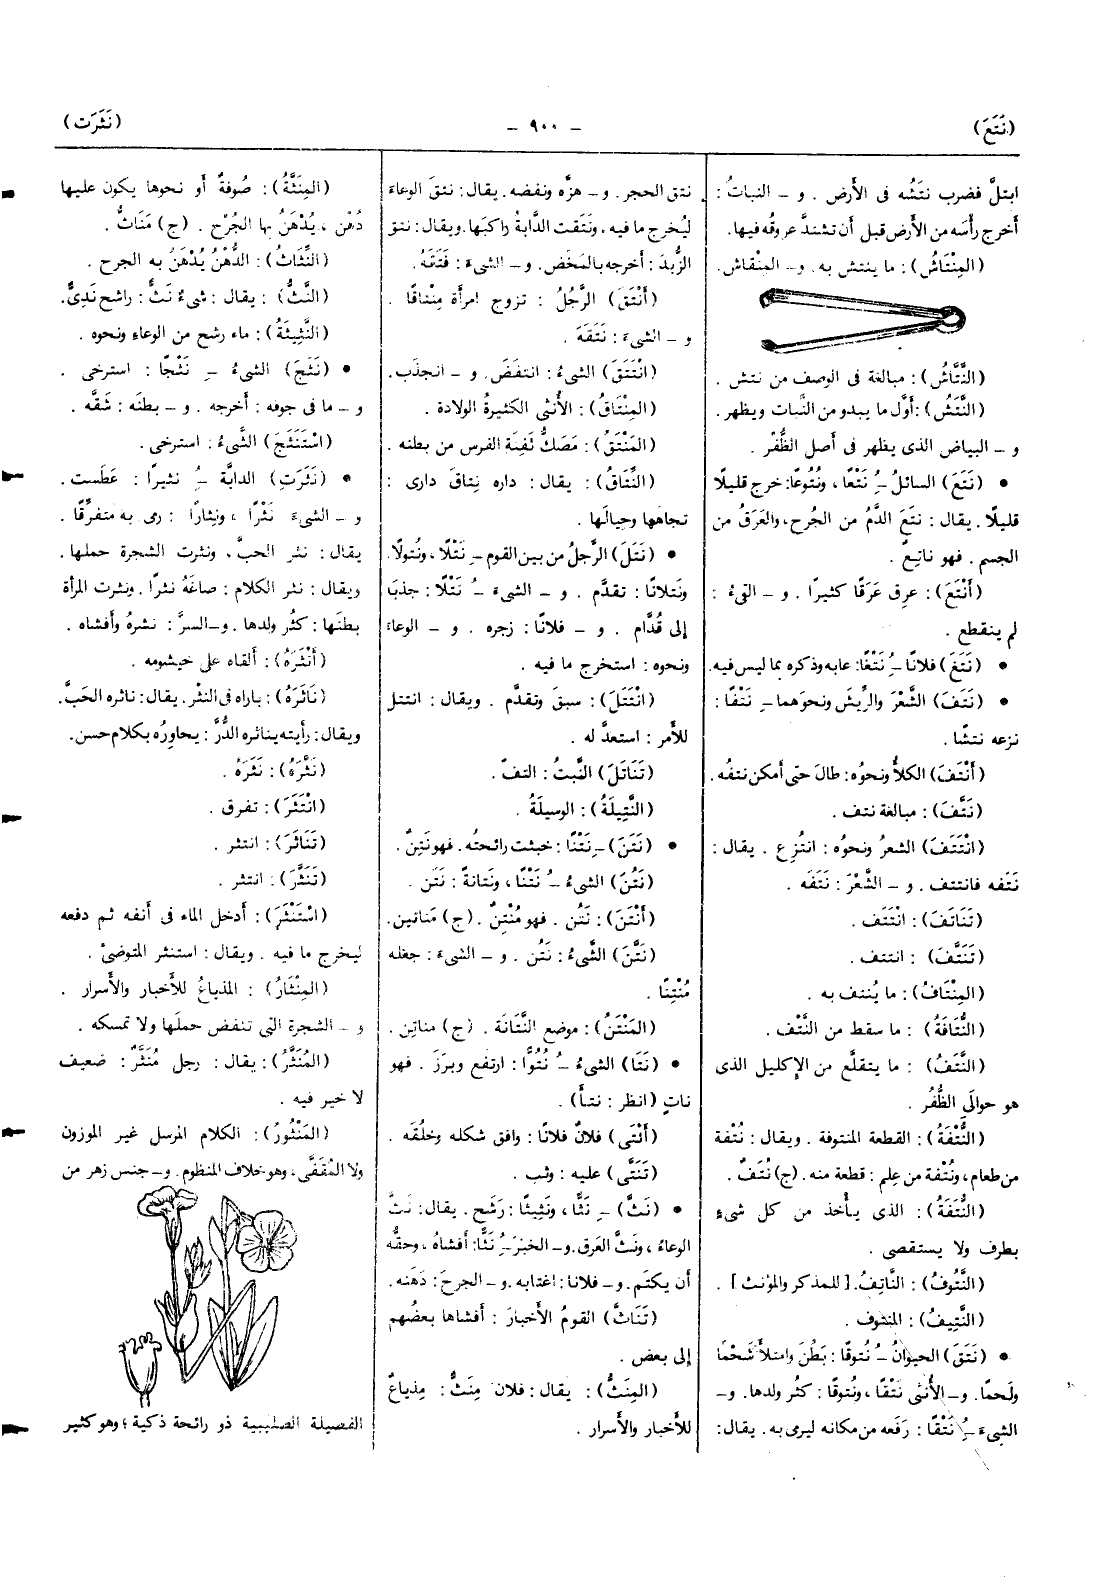 (نَتَعَ)
— ٩٠٠ —
(نَثَرَت)
ابتلَّ فضرب نتَشُه فى الأرض . و – النباتُ :
أخرج رأسَه من الأرض قبل أن تشتدَّ عروقه فيها.
(المِنْتَاش) : ما ينتش به . و – المِنْقاش.
(النَّتَّاش) : مبالغة فى الوصف من نتش .
(النَّتَش) : أوَّل ما يبدو من النَّبات ويظهر.
و – البياض الذى يظهر فى أصل الظُّفْر .
• (نَتَعَ) السائلُ –ُِ نَتْعًا ، ونُتُوعًا: خرج قليلًا
قليلًا . يقال : نتَعَ الدَّمُ من الجُرح، والعَرَق من
الجسم . فهو ناتِعٌ .
(أَنْتَعَ) : عرِق عَرَقًا كثيرًا . و – القىءُ :
لم ينقطع .
• (نَتَغَ) فلانًا –ُِ نَتْغًا: عابه وذكره بما ليس فيه.
• (نَتَفَ) الشَّعْرَ والرِّيشَ ونحوَهما –ِ نَتْفًا :
نزعه نتشًا .
(أَنْتَفَ) الكلأُ ونحوُه : طالَ حتى أمكن نتفُه .
(نَتَّفَ) : مبالغة نتف .
(انْتَتَفَ) الشعرُ ونحوُه : انتُزِع . يقال :
نَتَفه فانتتف . و – الشَّعْرَ : نَتَفَه .
(تَنَاتَفَ) : انْتَتَف .
(تَنَتَّفَ) : انتتف .
(المِنْتَافُ) : ما يُنتف به .
(النُّتَافَةُ) : ما سقط من النَّتْف .
(النَّتَفُ) : ما يتقلَّع من الإكليل الذى
هو حوالَى الظُّفُر .
(النُّتْفَةُ) : القطعة المنتوفة . ويقال : نُتْفة
من طعام ، ونُتْفة من عِلم : قطعة منه . (ج) نُتَفٌ .
(النُّتَفَةُ) : الذى يأخذ من كل شىءٍ
بطرف ولا يستقصى .
(النَّتُوفُ) : النَّاتِفُ . [ للمذكر والمؤنث ] .
(النَّتِيفُ) : المنتوف .
• (نَتَقَ) الحيوانُ –ُ نُتوقًا : بَطُنَ وامتلأ شَحْمًا
ولَحمًا. و – الأُنثى نَتْقًا ، ونُتوقًا : كثُر ولدها. و –
الشىءَ –ُِ نَتْقًا : رَفَعه من مكانه ليرمى به. يقال :
نتق الحجر. و – هزَّه ونفضه . يقال : نتقَ الوعاءَ
ليُخرج ما فيه ، ونَتَقت الدَّابةُ راكبَها. ويقال : نتق
الزُّبدَ : أخرجه بالمَخْض. و – الشىءَ : فَتَقَهُ .
(أَنْتَقَ) الرَّجُلُ : تزوج امرأة مِنْتاقًا .
و – الشىءَ : نَتَقَهُ .
(انْتَتَقَ) الشىءُ : انتفَضَ. و – انجذب.
(المِنْتَاقُ) : الأُنثى الكثيرةُ الولادة .
(المَنْتَقُ) : مَصَكُّ ثَفِنَة الفرس من بطنه .
(النِّتَاقُ) : يقال : داره نِتاقَ دارى :
تجاهها وحِيالَها .
• (نَتَلَ) الرَّجلُ من بين القوم –ِ نَتْلًا ، ونُتولًا،
ونَتلانًا : تقدَّم . و – الشىءَ –ُ نَتْلًا : جذبَه
إلى قُدَّام . و – فلانًا : زجره . و – الوعاءَ
ونحوه : استخرج ما فيه .
(انْتَتَلَ) : سبقَ وتقدَّم . ويقال : انتتل
للأَمر : استعدَّ له .
(تَنَاتَلَ) النَّبتُ : التفّ .
(النَّتِيلَةُ) : الوسيلةُ .
• (نَتَنَ) –ِ نَتْنًا : خبثت رائحتُه . فهو نَتِنٌ .
(نَتُنَ) الشىءُ –ُ نَتْنًا ، ونَتانةً : نَتَن .
(أَنْتَنَ) : نَتُن . فهو مُنْتِنٌ . (ج) مَناتين.
(نَتَّنَ) الشَّىءُ : نَتُن . و – الشىءَ : جعله
مُنْتِنًا .
(المَنْتَنُ) : موضع النَّتَانَة . (ج) مناتِن .
• (نَتَا) الشىءُ –ُ نُتُوًّا : ارتفع وبرَزَ . فهو
ناتٍ (انظر : نتأ) .
(أَنْتَى) فلانٌ فلانًا : وافق شكله وخلُقَه .
(تَنَتَّى) عليه : وثب .
• (نَثَّ) –ِ نَثًّا ، ونَثِيثًا : رَشَح . يقال : نَثَّ
الوعاءُ ، ونَثَّ العرق. و – الخبرَ –ُِ نَثًّا : أفشاهُ ، وحقُّه
أن يكتَم. و – فلانا : اغتابه. و – الجرحَ : دَهَنه .
(تَنَاثَّ) القومُ الأَخبارَ : أفشاها بعضُهم
إلى بعض .
(المِنَثُّ) : يقال : فلان مِنَثٌّ : مِذياعٌ
للأخبار والأسرار .
(المِنَثَّةُ) : صُوفةٌ أو نحوها يكون عليها
دُهْن ، يُدْهَنُ بها الجُرْح . (ج) مَنَاثُّ .
(النِّثَاثُ) : الدُّهْنُ يُدْهَنُ به الجرح .
(النَّثُّ) : يقال : شىءٌ نَثٌّ : راشح نَدِىٌّ.
(النَّثِيثَةُ) : ماء رشح من الوعاءِ ونحوه .
• (نَثَجَ) الشىءُ –ِ نَثْجًا : استرخى .
و – ما فى جوفه : أخرجه . و – بطنَه : شقَّه .
(اسْتَنْثَجَ) الشَّىءُ : استرخى .
• (نَثَرَتِ) الدابَّة –ُِ نثيرًا : عَطَست .
و – الشىءَ نَثْرًا ، ونِثارًا : رمى به متفرِّقًا .
يقال : نثر الحبَّ ، ونثرت الشجرة حملها .
ويقال : نثر الكلام : صاغَهُ نثرًا . ونثرت المرأة
بطنَها : كثُر ولدها . و – السرَّ : نشرهُ وأفشاه .
(أَنْثَرَهُ) : ألقاه على خيشومه .
(نَاثَرَهُ) : باراه فى النثْر. يقال : ناثره الحَبَّ.
ويقال : رأيته يناثره الدُّرَّ : يحاوِرُه بكلام حسن.
(نَثَّرَهُ) : نَثَرَهُ .
(انْتَثَرَ) : تفرق .
(تَنَاثَرَ) : انتثر .
(تَنَثَّرَ) : انتثر .
(اسْتَنْثَرَ) : أدخل الماء فى أنفه ثم دفعه
ليخرج ما فيه . ويقال : استنثر المتوضئ .
(المِنْثَارُ) : المذياعُ للأخبار والأسرار .
و – الشجرة التى تنفض حملَها ولا تمسكه .
(المُنَثَّرُ) : يقال : رجل مُنَثَّرٌ : ضعيف
لا خير فيه .
(المَنْثُورُ) : الكلام المرسل غير الموزون
ولا المُقَفَّى ، وهو خلاف المنظوم. و – جنس زهر من
الفصيلة الصليبية ذو رائحة ذكية ؛ وهو كثير